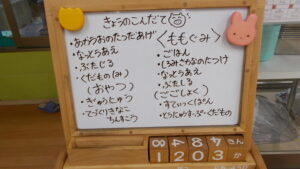 きょうのこんだて
・あかうおのたつたあげ
・なっとうあえ
・ぶたじる
・くだもの(み)
(おやつ)
・ぎゅうにゅう
・てづくりきなこ
ちんすこう
〈ももぐみ〉
・ごはん
・しろみざかなのたつたあげ
・なっとうあえ
・ぶたじる
(ごごしょく)
・すてぃっくぱん
・とうにゅうすーぷ・くだもの